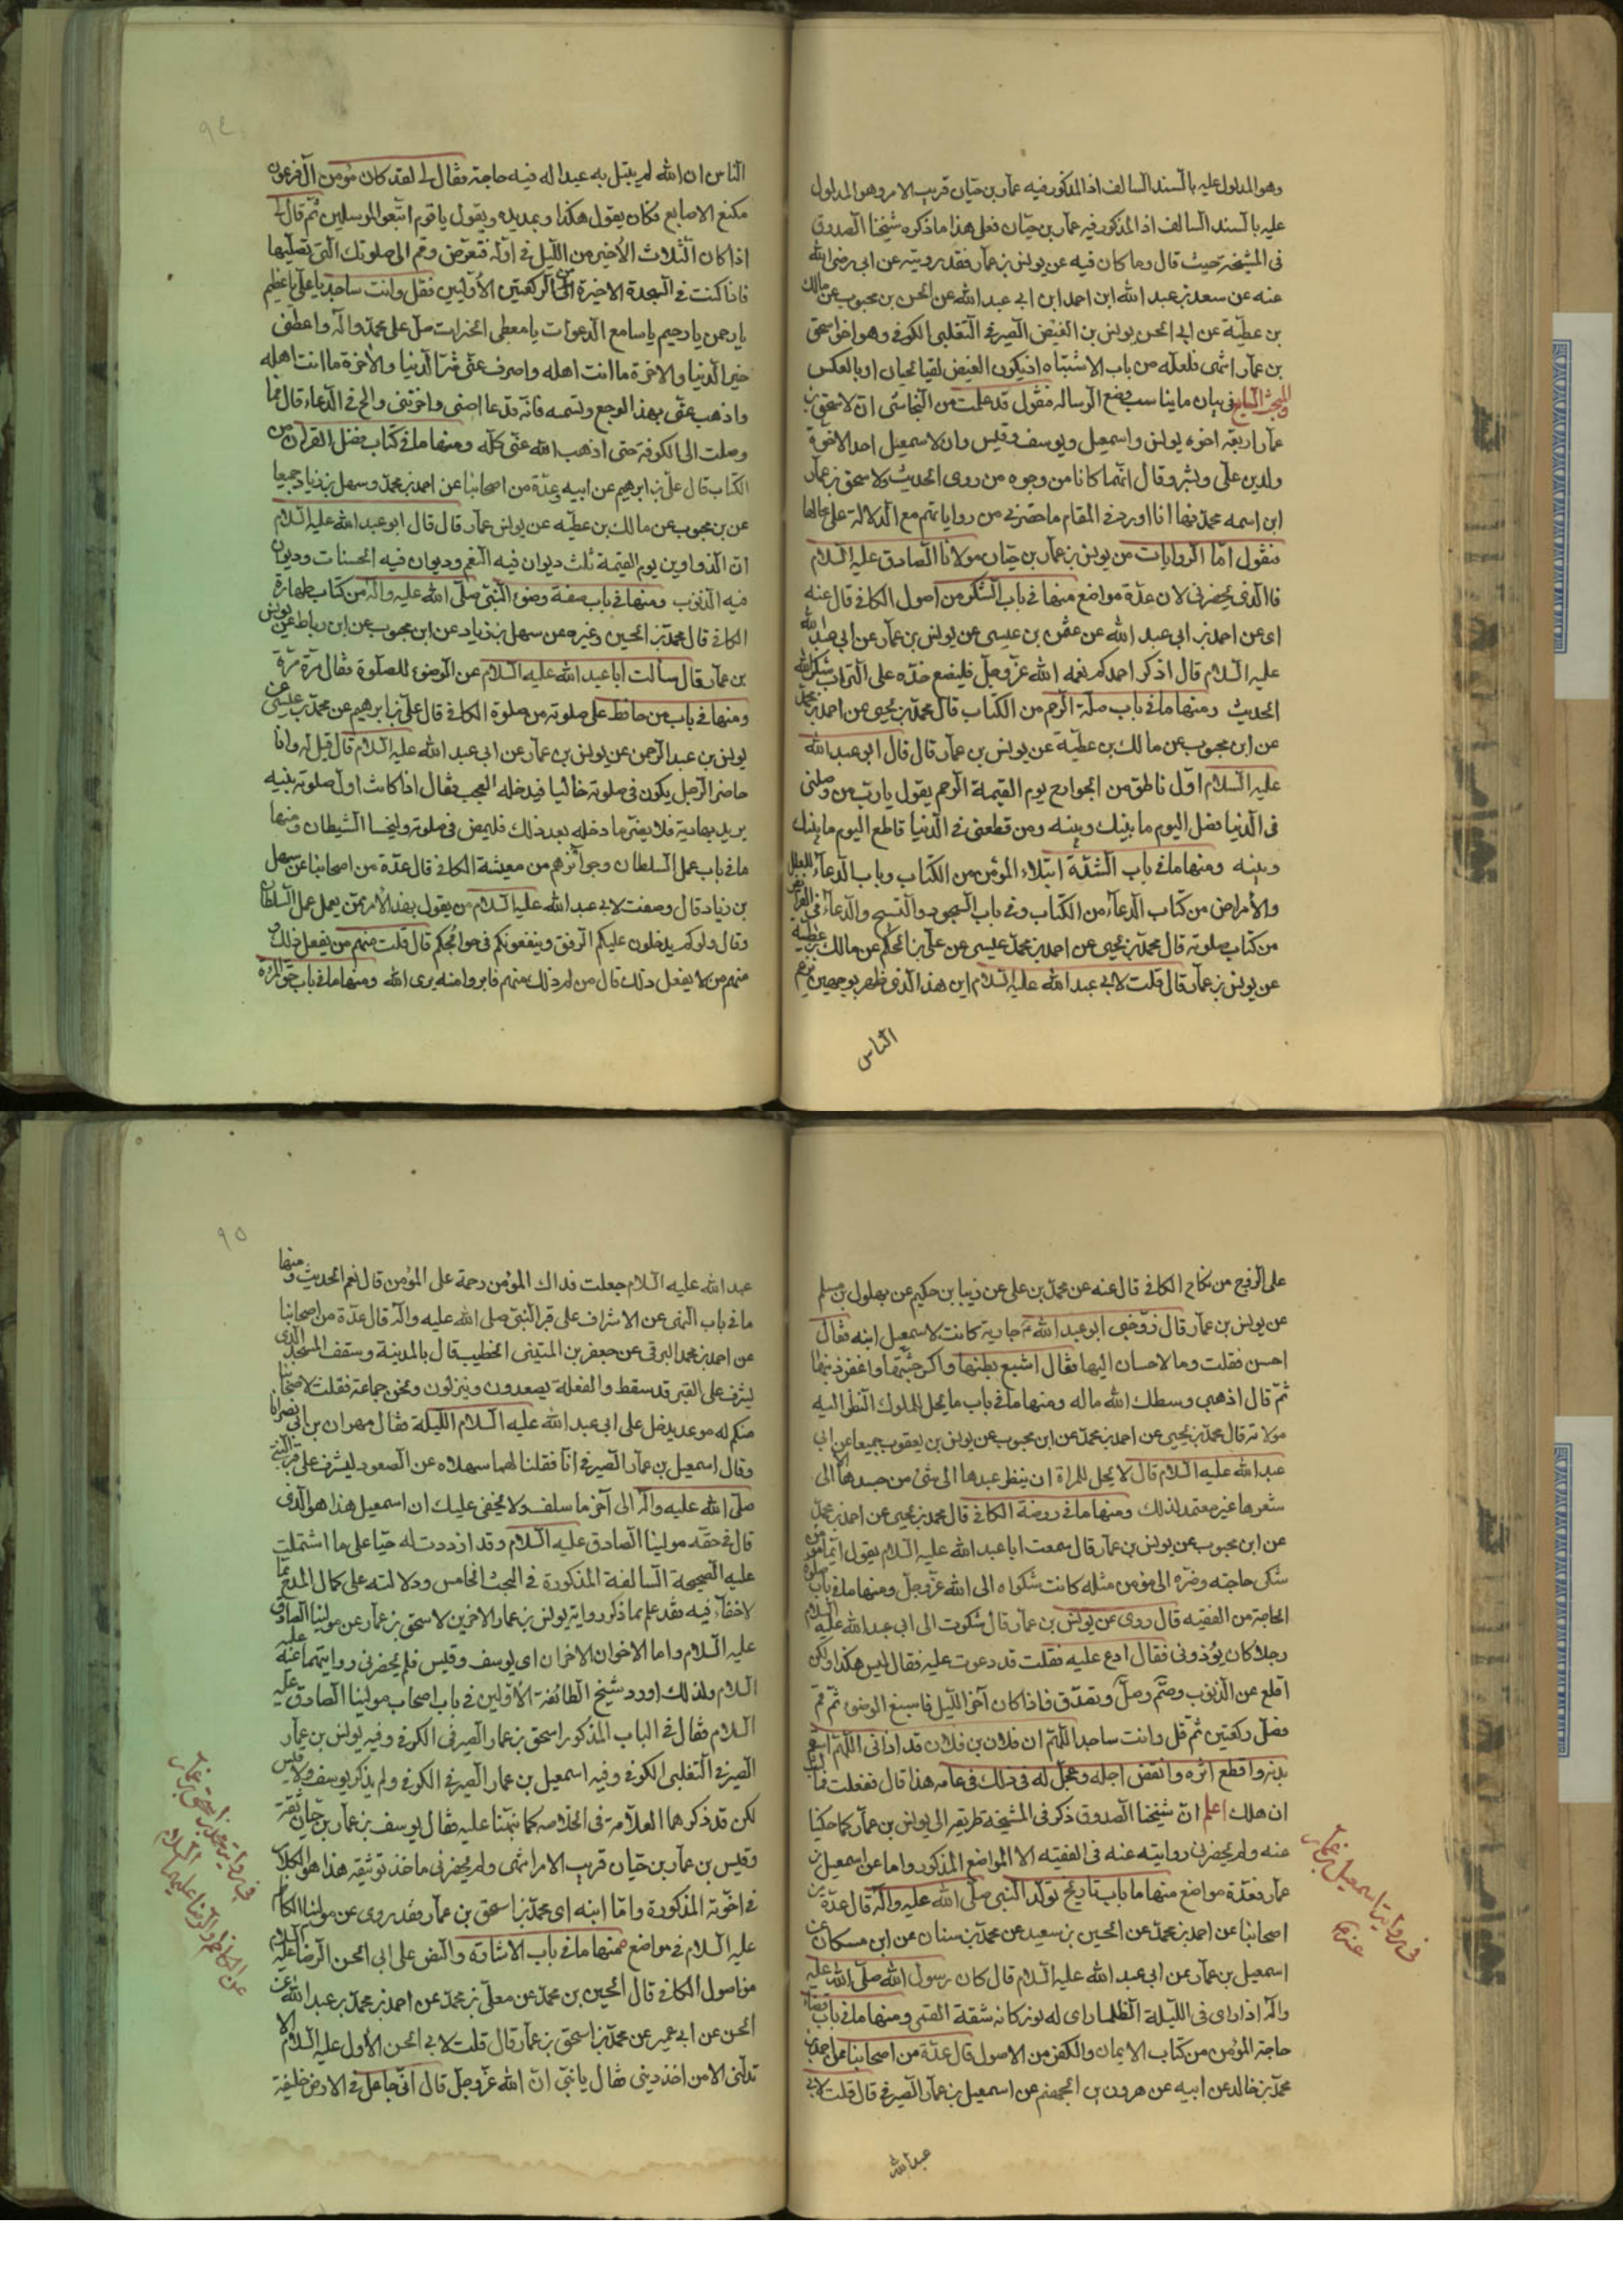 وهو المدلول عليه بالسند السالف اذ المذكور فيه عمار بن حيان قريب الامر وهو المدلول
عليه بالسند السالف اذ المذكور فيه عمار بن حيان فعلى هذا ما ذكره شيخنا الصدوق
فى المشيخة حيث قال وما كان فيه عن يونس بن عمار فقد رويته عن ابى رضى الله
عنه عن سعد بن عبد الله ابن احمد ابن ابى عبد الله عن الحسن بن محبوب عن مالك
بن عطية عن ابى الحسن يونس بن الفيض الصيرفى التغلبى الكوفى وهو اخو اسحق
بن عمار انتهى فلعله من باب الاشتباه او يكون الفيض لقبا لحيان او بالعكس
المبحث السابع فى بيان ما يناسب وضع الرسالة فنقول قد علمت من النجاشى ان لاسحق بن
عمار اربعة اخوه يونس واسمعيل ويوسف وقيس وان لاسمعيل احد الاخوة
ولدين على وبشر وقال انهما كانا من وجوه من روى الحديث ولاسحق بن عمار
ابن اسمه محمد فها انا اورد فى المقام ما حضرنى من رواياتهم مع الدلالة على محالها
فنقول اما الروايات من يونس بن عمار بن حيان مولانا الصادق عليه السلام
فالذى يحضرنى لان عدة مواضع منها فى باب الشكر من اصول الكافى قال عنه
اى عن احمد بن ابى عبد الله عن عثمن بن عيسى عن يونس بن عمار عن ابى عبد الله
عليه السلام قال اذا ذكر احدكم نعمه الله عز وجل فليضع خده على التراب شكرا لله
الحديث ومنها ما فى باب صلة الرحم من الكتاب قال محمد بن يحيى عن احمد بن محمد
عن ابن محبوب عن مالك بن عطية عن يونس بن عمار قال قال ابو عبد الله
عليه السلام اول ناطق من الجوارح يوم القيمة الرحم يقول يارب من وصلنى
فى الدنيا فصل اليوم ما بينك وبينه ومن قطعنى فى الدنيا فاقطع اليوم ما بينك
وبينه ومنها ما فى باب الشدة ابتلاء المؤمن من الكتاب وباب الدعاء للعلل
والامراض من كتاب الدعاء من الكتاب وفى باب السجود والتسبيح والدعاء فى الفرايض
من كتاب صلوته قال محمد بن يحيى عن احمد بن محمد عيسى عن على بن الحكم عن مالك بن عطية
عن يونس بن عمار قال قلت لابى عبد الله عليه السلام ان هذا الذى ظهر بوجهى يزعم
الناس
الناس ان الله لم يبتل به عبدا له فيه حاجة فقال لى لقد كان مؤمن آل فرعون
مكنع الاصابع فكان يقول هكذا ويمد يده ويقول يا قوم اتبعوا المرسلين ثم قال لى
اذا كان الثلاث الاخير من الليل فى اوله فتوض وقم الى صلوتك التى تصليها
فاذا كنت فى السجدة الاخيرة من الركعتين الاوليين فقل وانت ساجد يا على يا عظيم
يا رحمن يا رحيم يا سامع الدعوات يا معطى الخيرات صل على محمد وآله واعطنى
خير الدنيا والاخرة ما انت اهله واصرف عنى شر الدنيا والاخرة ما انت اهله
واذهب عنى بهذا الوجع وتسمه فانه قد غاظنى واحزننى والح فى الدعاء قال فما
وصلت الى الكوفة حتى اذهب الله عنى كله ومنها ما فى كتاب فضل القرآن من
الكتاب قال على بن ابرهيم عن ابيه وعدة من اصحابنا عن احمد بن محمد وسهل بن زياد جميعا
عن بن محبوب عن مالك بن عطيه عن يونس عمار قال قال ابو عبد الله عليه السلام
ان الدواوين يوم القيمة ثلث ديوان فيه النعم وديوان فيه الحسنات وديوان
فيه الذنوب ومنها فى باب صفة وضوء النبى صلى الله عليه وآله من كتاب طهارة
الكافى قال محمد بن الحسين وغيره عن سهل بن زياد عن ابن محبوب عن ابن رباط عن يونس
بن عمار قال سألت ابا عبد الله عليه السلام عن الوضوء للصلوة فقال مرة مرة
ومنها فى باب من حافظ على صلوته من صلوة الكافى قال على بن ابرهيم عن محمد بن عيسى عن
يونس بن عبد الرحمن عن يونس بن عمار عن ابى عبد الله عليه السلام قال قيل له وانا
حاضر الرجل يكون فى صلوته خاليا فيدخله العجب فقال اذا كانت اول صلوته بنيه
يريد بها ربه فلا يضره ما دخله بعد ذلك فليمض فى صلوته وليخسا الشيطان ومنها
ما فى باب عمل السلطان وجوائزهم من معيشة الكافى قال عدة من اصحابنا عن سهل
بن زياد قال وصفت لابى عبد الله عليه السلام من يقول بهذا الامر ممن يعمل عمل السلطان
وقال ولوكم يدخلون عليكم الرفق وينفعونكم فى حوائجكم قال قلت منهم من يفعل ذلك و
منهم من لا يفعل ذلك قال من لم ذلك منهم فابروا منه برى الله ومنها ما فى باب حق المرءه
على الزوج من نكاح الكافى قال عنه عن محمد بن على عن ذبيان بن حكيم عن بهلول بن مسلم
عن يونس بن عمار قال زوجنى ابو عبد الله ع جارية كانت لاسمعيل ابنه فقال
احسن فقلت وما الاحسان اليها فقال اشبع بطنها واكس جثتها واغفر ذنبها
ثم قال اذهبى وسطك الله ماله ومنها ما فى باب ما يحل للملوك النظر اليه
مولاته قال محمد بن يحيى عن احمد بن محمد عن ابن محبوب عن يونس بن يعقوب جميعا عن ابى
عبد الله عليه السلام قال لا يحل للمراة ان ينظر عبدها الى شئ من جسدها الا الى
شعرها غير معتمد لذلك ومنها ما فى روضة الكافى قال محمد بن يحيى عن احمد بن محمد
عن ابن محبوب عن يونس بن عمار قال سمعت ابا عبد الله عليه السلام يقول ايما مؤمن
شكى حاجته وضره الى مؤمن مثله كانت شكواه الى الله عز وجل ومنها ما فى باب صلوة
الحاجة من الفقيه قال روى عن يونس بن عمار قال شكوت الى ابى عبد الله عليه السلام
رجلا كان يؤذونى فقال ادع عليه فقلت قد دعوت عليه فقال ليس هكذا ولكن
اقلع عن الذنوب وصم وصل وتصدق فاذا كان آخر الليل فاسبغ الوضوء ثم قم
فصل ركعتين ثم قل وانت ساجد اللهم ان فلان بن فلان قد اذانى اللهم اسقم
بدنه واقطع اثره وانقص اجله وعجل له فى ذلك فى عامه هذا قال ففعلت فما لبث
ان هلك اعلم ان شيخنا الصدوق ذكر فى المشيخة طريقه الى يونس بن عمار كما حكينا
عنه ولم يحضرنى روايته عنه فى الفقيه الا المواضع المذكور واما عن اسمعيل بن
عمار فعدة مواضع منها ما باب تاريخ تولد النبى صلى الله عليه وآله قال عدة من
اصحابنا عن احمد بن محمد عن الحسين بن سعيد عن محمد بن سنان عن ابن مسكان عن
اسمعيل بن عمار عن ابى عبد الله عليه السلام قال كان رسول الله صلى الله عليه
وآله اذا راى فى الليلة الظلماء راى له نور كانه شقة القمر ومنها ما فى باب قضاء
حاجة المؤمن من كتاب الايمان والكفر من الاصول قال عدة من اصحابنا عن احمد بن
محمد بن خالد عن ابيه عن هرون بن الجهم عن اسمعيل بن عمار الصيرفى قال قلت لابى
فى رواية اسمعيل بن عمار
عنه ع
عبد الله
عبد الله عليه السلام جعلت فداك المؤمن رحمة على المؤمن قال نعم الحديث ومنها
ما فى باب النهى عن الاشراف على قبر النبى صلى الله عليه وآله قال عدة من اصحابنا
عن احمد بن محمد البرقى عن جعفر بن المثنى الخطيب قال بالمدينة وسقف المسجد الذى
يشرف على القبر قد سقط والفعلة يصعدون وينزلون ونحن جماعة فقلت لاصحابنا
منكم له موعد يدخل على ابى عبد الله عليه السلام الليلة فقال مهران بن ابى نصر انا
وقال اسمعيل بن عمار الصيرفى انا فقلنا لهما سهلاه عن الصعود ليشرف على قبر النبى
صلى الله عليه وآله الى آخر ما سلف ولا يخفى عليك ان اسمعيل هذا هو الذى
قال فى حقه مولينا الصادق عليه السلام وقد ازددت له حبا على ما اشتملت
عليه الصحيحة السالفة المذكورة فى المبحث الخامس ودلالته على كمال المدح مما
لاخفاء فيه فقد علم مما ذكر رواية يونس بن عمار الاخرين لاسحق بن عمار عن مولينا الصادق
عليه السلام واما الاخوان الاخران اى يوسف وقيس فلم يحضرنى روايتهما عنه عليه
السلام ولذلك اورد شيخ الطائفة الاولين فى باب اصحاب مولينا الصادق عليه
السلام فقال فى الباب المذكور اسحق بن عمار الصيرفى الكوفى وفيه يونس بن عمار
الصيرفى التغلبى الكوفى وفيه اسمعيل بن عمار الصيرفى الكوفى ولم يذكر يوسف ولا قيس
لكن قد ذكرهما العلامة فى الخلاصه كما نبهنا عليه فقال يوسف بن عمار بن حيان ثقة
وقيس بن عمار بن حيان قريب الامر انتهى ولم يحضرنى ماخذ توثيقه هذا هو الكلام
فى اخوته المذكورة واما ابنه اى محمد بن اسحق بن عمار فقد روى عن مولينا الكاظم
عليه السلام فى مواضع منها ما فى باب الاشارة والنص على ابى الحسن الرضا عليه السلام
من اصول الكافى قال الحسين بن محمد عن معلى بن محمد عن احمد بن محمد بن عبد الله عن
الحسن عن ابى عمير عن محمد بن اسحق بن عمار قال قلت لابى الحسن الاول عليه السلام الا
تدلنى الا من اخذ دينى فقال يا بنى ان الله عز وجل قال انى جاعل فى الارض خليفة
فى رواية محمد بن اسحق بن عمار
عن الكاظم والرضا عليهما السلام
٩٤
٩٥